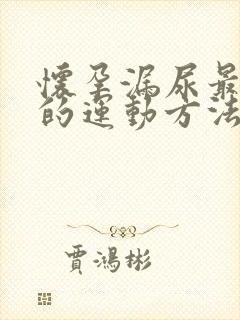 懷孕漏尿最
的運動方法
賈鴻彬